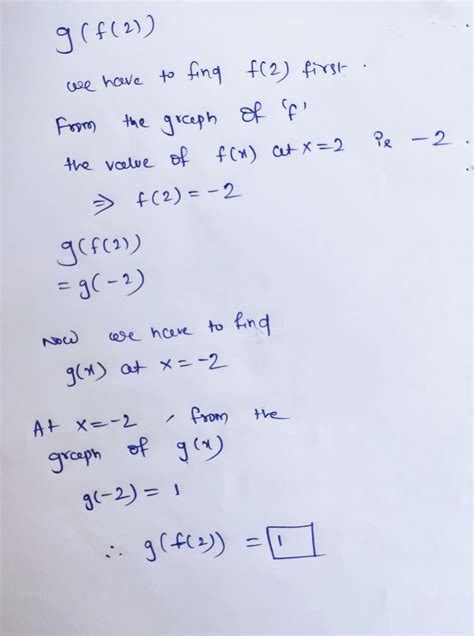 g(f(2))
we have to find f(2) first.
From the graph of 'f'
the value of f(x) at x=2 ie -2.
⇒ f(2) = -2
g(f(2))
= g(-2)
Now we have to find
g(x) at x = -2
At x=-2, from the
graph of g(x)
g(-2) = 1
∴ g(f(2)) = 1